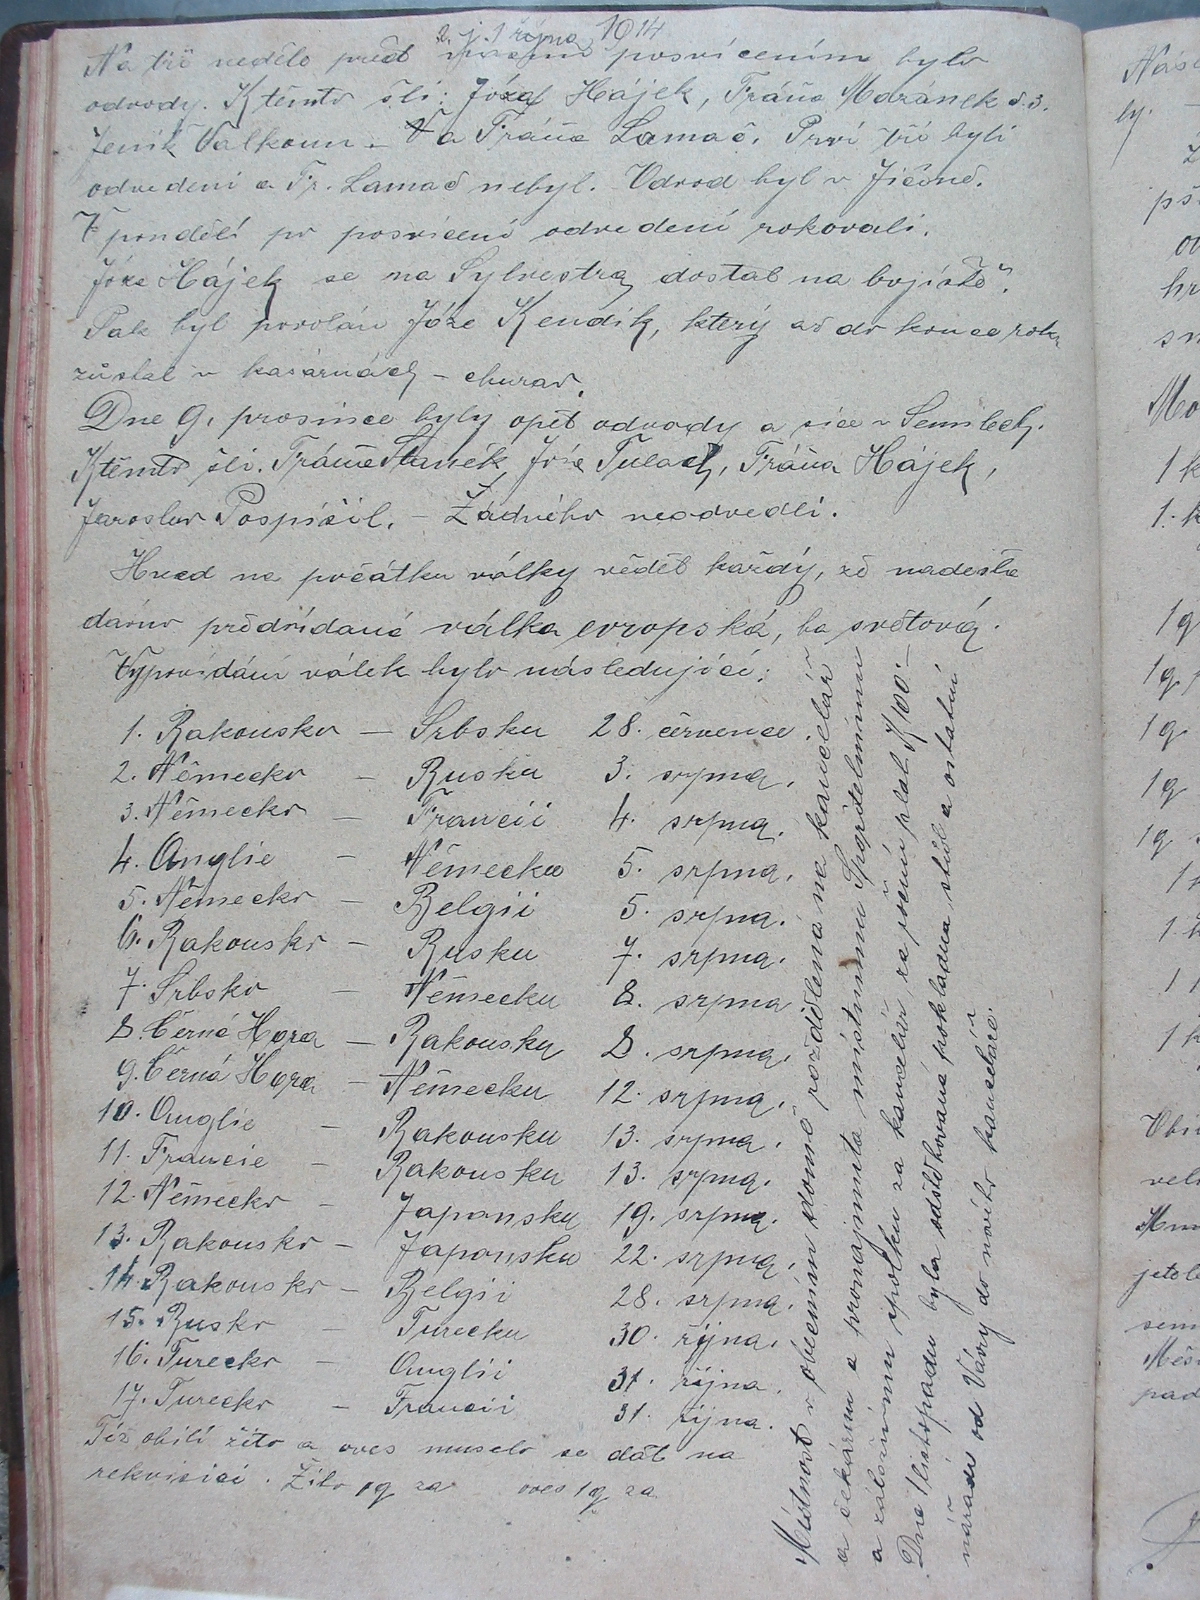 2. j. 1 října 1914
Na tři neděle před posvícením bylo
odvody. K těmto šli: Józa Hájek, Fráňa Mdránek č. 3.
Jeník Valkoun – a Fráňa Lamač. Prví tři byli
odvedeni a Fr. Lamač nebyl. Odvod byl v Jičíně.
V pondělí po posvícení odvedení rukovali.
Józa Hájek se na Sylvestra dostal na bojiště.
Pak byl povolán Józa Kendík, který až do konce roku
zůstal v kasárnách – churav.
Dne 9. prosince byly opět odvody a sice v Semilech.
K těmto šli. Fráňa Staněk, Józa Tulach, Fráňa Hájek,
Jaroslav Pospíšil. – Žádného neodvedli.
Hned na počátku války věděl každý, že nadešla
dávno předvídaná válka evropská, ba světová.
Vypovídání válek bylo následující:
1. Rakousko – Srbsku 28. července.
2. Německo – Rusku 3. srpna.
3. Německo – Francii 4. srpna.
4. Anglie – Německu 5. srpna.
5. Německo – Belgii 5. srpna.
6. Rakousko – Rusku 7. srpna.
7. Srbsko – Německu 8. srpna
8. Černá Hora – Rakousku 8. srpna.
9. Černá Hora – Německu 12. srpna.
10. Anglie – Rakousku 13. srpna.
11. Francie – Rakousku 13. srpna.
12. Německo – Japonsku 19. srpna.
13. Rakousko – Japonsku 22. srpna.
14. Rakousko – Belgii 28. srpna.
15. Rusko – Turecku 30. října.
16. Turecko – Anglii 31. října.
17. Turecko – Francii 31. října.
Též obilí žito a oves muselo se dát na
rekvisici. Žito 1q za oves 1q za
Místnost v obecním domě rozdělena na kancelář
a čekárnu a pronajmuta místnímu Spořitelnímu
a záložnímu spolku za kancelář za roční plat K 100.–
Dne 1 listopadu byla odstěhována pokladna stůl a ostatní
nářadí od Vávry do nového kanceláře.